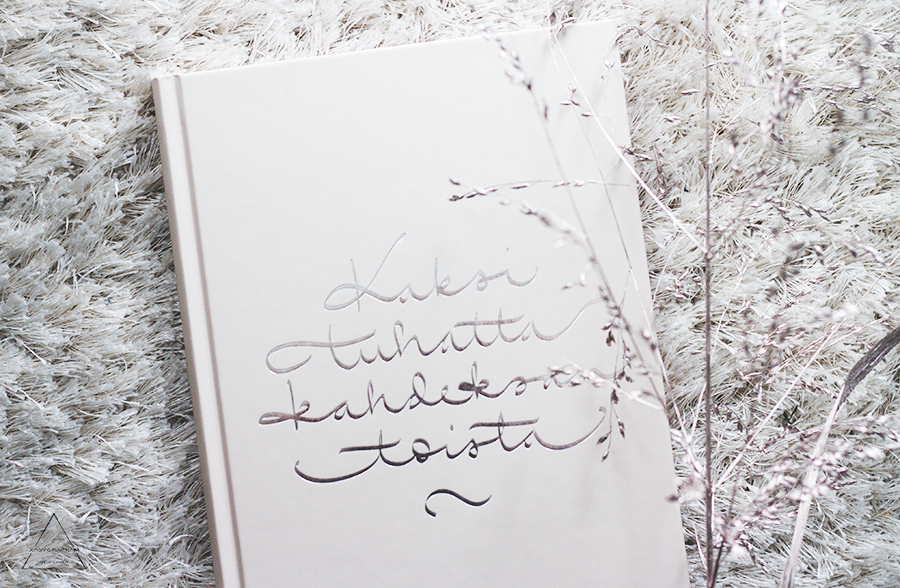 Kaksi
tuhatta
kahdeksan
toista